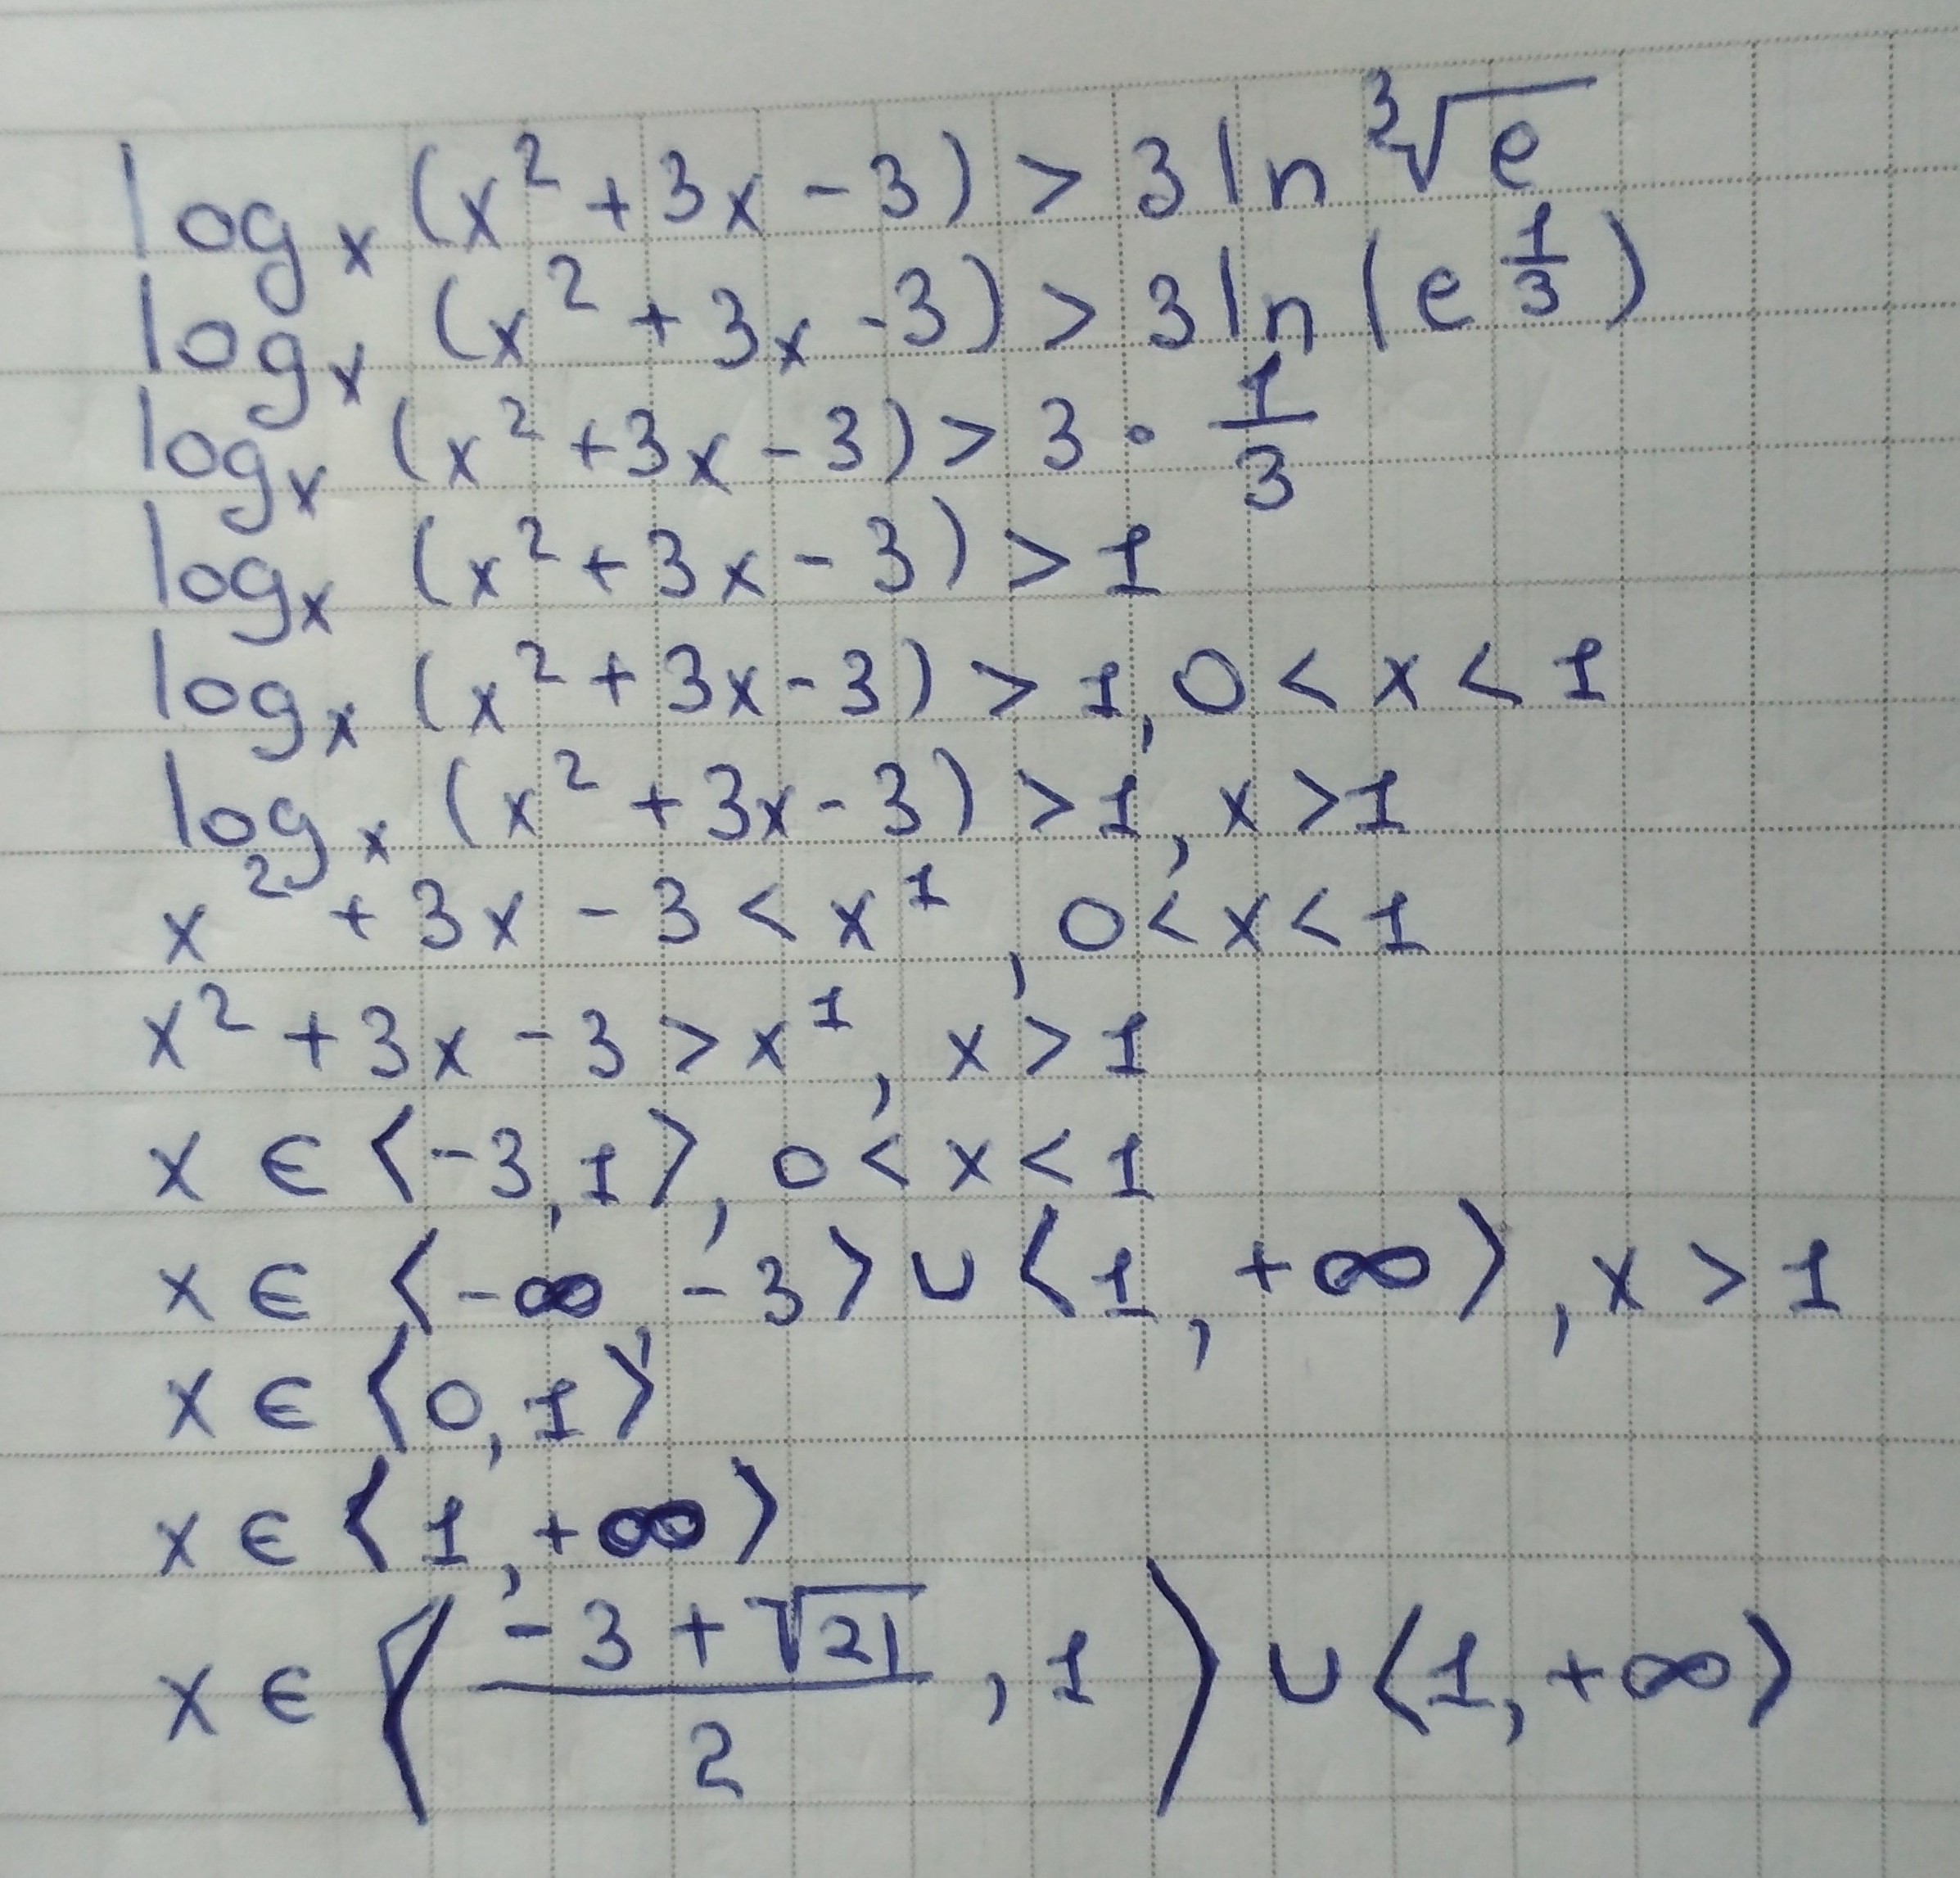 log_x (x² + 3x - 3) > 3 ln ∛e
log_x (x² + 3x - 3) > 3 ln (e^(1/3))
log_x (x² + 3x - 3) > 3 · 1/3
log_x (x² + 3x - 3) > 1
log_x (x² + 3x - 3) > 1, 0 < x < 1
log_x (x² + 3x - 3) > 1, x > 1
x² + 3x - 3 < x¹, 0 < x < 1
x² + 3x - 3 > x¹, x > 1
x ∈ ⟨-3, 1⟩, 0 < x < 1
x ∈ ⟨-∞, -3⟩ ∪ ⟨1, +∞⟩, x > 1
x ∈ ⟨0, 1⟩
x ∈ ⟨1, +∞⟩
x ∈ ⟨(-3 + √21)/2, 1⟩ ∪ ⟨1, +∞⟩